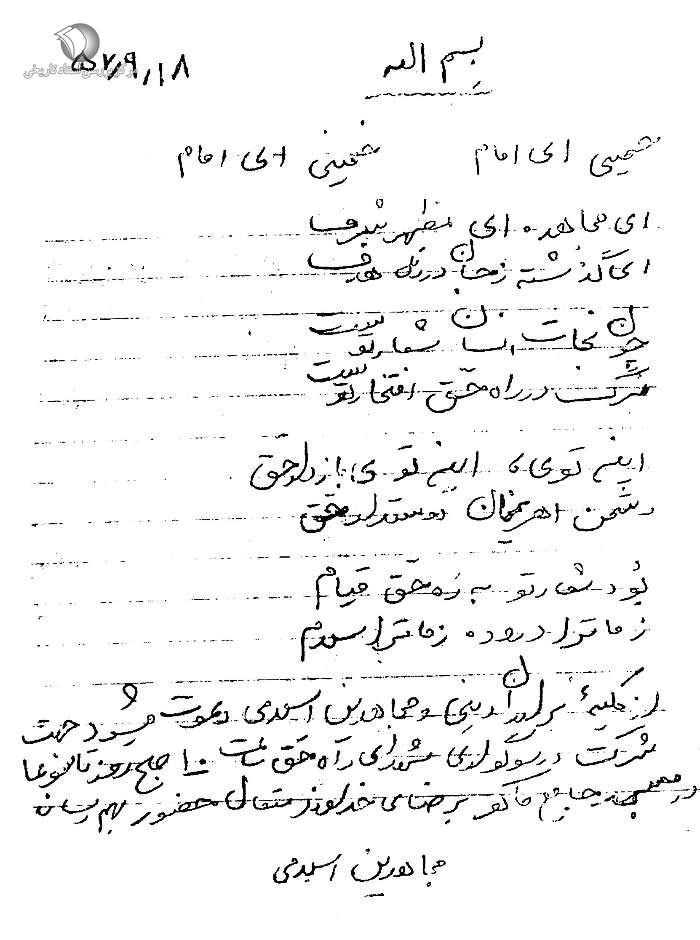 مرکز بررسی اسناد تاریخی
۵۷٫۹٫۱۸
بسم الله
خمینی ای امام خمینی ای امام
ای مجاهد ای مظهر شرف
ای گذشته ز جان در ره هدف
چون نجات انسان شعار توست
مرگ در راه حق افتخار توست
این توی، این توی پاسدار حق
دشمن اهریمنان دوستدار حق
بُود شعار تو به رَه حق قیام
ز ما ترا درود ز ما ترا سلام
از کلیهٔ برادران دینی و مجاهدین اسلامی دعوت میشود جهت
شرکت در سوگواری شهدای راه حق ساعت ۱۰ صبح روز تاسوعا
در مسجد جامع ماکو برضای خداوند متعال حضور بهم رسانند
مجاهدین اسلامی